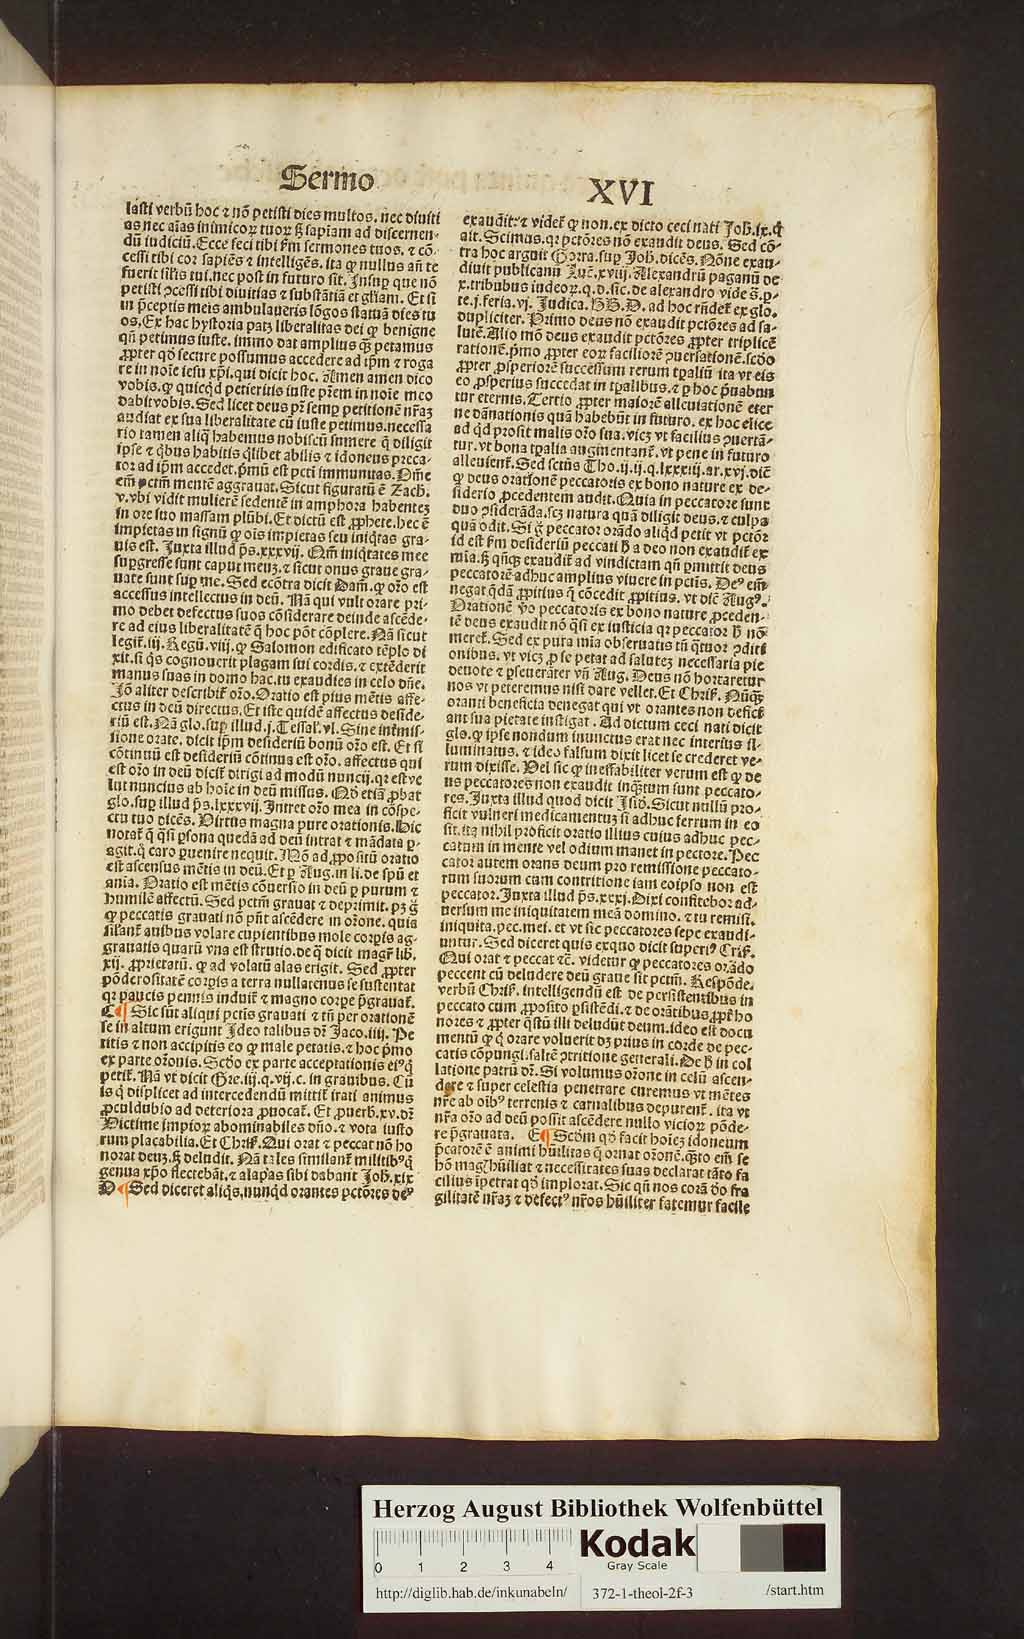 Sermo
XVI
lasti verbũ hoc ⁊ nõ petisti dies multos. nec diuiti
as nec aĩas inimicoꝝ tuoꝝ sꝫ sapiam ad discernen-
dũ iudiciũ. Ecce feci tibi ẜm sermones tuos. ⁊ cõ-
cessi tibi cor sapiẽs ⁊ intelligẽs. ita ꝙ nullus añ te
fuerit sil̃is tui. nec post in futuro sit. Insuꝑ que nõ
petisti ↄcessi tibi diuitias ⁊ substãtiã et gl̃iam. Et si
in p̃ceptis meis ambulaueris lõgos dies tu
os. Ex hac hystoria patꝫ liberalitas dei ꝙ benigne
qñ petimus iuste. immo dat amplius qꝫ petamus
ꝓpter qd̾ secure possumus accedere ad ip̃m ⁊ roga
re in noĩe iesu xp̃i. qui dicit hoc. Amen amen dico
vobis. ꝙ quicqd petieritis iuste pr̃em in noĩe meo
dabit vobis. Sed licet deus pr̃ semꝑ petitionẽ nr̃aꝫ
audiat ex sua liberalitate cũ iuste petimus. necessa
rio tamen aliq̃ habemus nobiscũ sumere q̃ diligit
ipse ⁊ qb̾us habitis qlibet abilis ⁊ idoneus preca-
tor ad ip̃m accedet. p̃mũ est pcti immunitas. Nm̃e
em̃ pctm̃ mentẽ aggrauat. Sicut figuratũ ẽ Zach.
v. vbi vidit mulierẽ sedentẽ in amphora habenteꝫ
in ore suo massam plũbi. Et dictũ est ꝓphete. hec ẽ
impietas in signũ ꝙ oĩs impietas seu iniqtas gra-
uis est. Juxta illud p̃s. xxxvij. Qm̃ iniqtates mee
suꝑgresse sunt caput meuꝫ. ⁊ sicut onus graue gra-
uate sunt suꝑ me. Sed ecõtra dicit Dam̃. ꝙ or̃o est
accessus intellectus in deũ. Nã qui vult orare pri-
mo debet defectus suos cõsiderare deinde ascẽde-
re ad eius liberalitatẽ q̃ hoc põt cõplere. Nã sicut
legit̃. iij. Regũ. viij. ꝙ Salomon edificato tẽplo di
xit. si qs cognouerit plagam sui cordis. ⁊ extẽderit
manus suas in domo hac. tu exaudies in celo dñe.
Jõ aliter describit̃ or̃o. Oratio est pius mẽtis affe-
ctus in deũ directus. Et iste quidẽ affectus deside-
riũ est. Nã glo. suꝑ illud. j. Tessal̃. vl. Sine intmis-
sione orate. dicit ip̃m desideriũ bonũ or̃o est. Et si
cõtinuũ est desideriũ cõtinua est or̃o. affectus qui
est or̃o in deũ dicit̃ dirigi ad modũ nuncij. qr est ve
lut nuncius ab hoĩe in deũ missus. Qd̾ etiã ꝓbat
glo. suꝑ illud p̃s. lxxxvij. Intret or̃o mea in cõspe-
ctu tuo dicẽs. Virtus magna pure orationis. Hic
notat̃ q̃ q̃si ꝑsona quedã ad deũ intrat ⁊ mãdata ꝑ-
agit. q̃ caro ꝑuenire nequit. Nõ ad ꝓpositũ oratio
est ascensus mẽtis in deũ. Et ꝑ Aug. in li. de spũ et
anĩa. Oratio est mẽtis cõuersio in deũ ꝑ purum ⁊
humilẽ affectũ. Sed pctm̃ grauat ⁊ deprimit. pꝫ g̃
ꝙ peccatis grauati nõ pñt ascẽdere in or̃one. quia
silant̃ auibus volare cupientibus mole corꝑis ag-
grauatis quarũ vna est strutio. de q̃ dicit magr̃ lib̾.
xij. ꝓprietatũ. ꝙ ad volatũ alas erigit. Sed ꝓpter
põderositatẽ corꝑis a terra nullatenus se sustentat
qr paucis pennis induit̃ ⁊ magno corꝑe p̃grauat̃.
C¶ Sic sũt aliqui pctis̃ grauati ⁊ tñ per orationẽ
se in altum erigunt Ideo talibus dr̃ Jaco. iiij. Pe
titis ⁊ non accipitis eo ꝙ male petatis. ⁊ hoc p̃mo
ex parte or̃onis. Scd̾o ex parte acceptationis ei⁹ q̃
petit̃. Nã vt dicit Gre. iij. q. vij. c. in grauibus. Cũ
is q̃ displicet ad intercedendũ mittit̃ irati animus
ꝓculdubio ad deteriora ꝓuocat̃. Et ꝓuerb̾. xv. dr̃
Victime impioꝝ abominabiles dño. ⁊ vota iusto
rum placabilia. Et Chris̃. Qui orat ⁊ peccat nõ ho
norat deuꝫ. sꝫ deludit. Nã tales similant̃ militib⁹ q̃
genua xp̃o flectebãt. ⁊ alapas sibi dabant Joh̾. xix
D ¶ Sed diceret aliqs. nunqd orantes pctõres de⁹
exaudit: ⁊ videt̃ ꝙ non. ex dicto ceci nati Joh̾. ix. q̃
ait. Scimus. qr pctõres nõ exaudit deus. Sed cõ-
tra hoc arguit Gorra. suꝑ Joh̾. dicẽs. Nõne exau-
diuit publicanũ Luc̃. xviij. Alexandrũ paganũ de
x. tribubus iudeoꝝ. q. d. sic. de alexandro vide s̃. ꝑ-
te. j. feria. vj. Judica. ad hoc rñdet̃ ex glo.
dupliciter. Primo deus nõ exaudit pctõres ad sa-
lutẽ. Alio mõ deus exaudit pctõres ꝓpter triplicẽ
rationẽ. p̃mo ꝓpter eoꝝ faciliorẽ ↄuersationẽ. scd̾o
ꝓpter ꝓsperiorẽ successum rerum tꝑaliũ ita vt eis
eo ꝓsperius succedat in tꝑalibus. ⁊ ꝑ hoc p̃uabun
tur eternis. Tertio ꝓpter maiorẽ alleuiationẽ eter
ne dãnationis quã habebũt in futuro. ex hoc elice
ad qd prosit malis or̃o sua. vicꝫ vt facilius ↄuertã-
tur. vt bona tꝑalia augmentant̃. vt pene in futuro
alleuient̃. Sed sctũs Tho. ij. ij. q. lxxxiij. ar. xvj. dic̃
ꝙ deus orationẽ peccatoris ex bono nature ex de-
siderio ꝓcedentem audit. Quia in peccatore sunt
duo ↄsiderãda. scꝫ natura quã diligit deus. ⁊ culpa
quã odit. Si g̃ peccator orãdo aliqd petit vt pctõr
id est ẜm desideriũ peccati h̾ a deo non exaudit̃ ex
mĩa. sꝫ qñqꝫ exaudit̃ ad vindictam qñ ꝑmittit deus
peccatorẽ adhuc amplius viuere in pctis̃. De⁹ em̃
negat qdã ꝓpitius q̃ cõcedit ꝓpitius. vt dic̃ Aug⁹.
Orationẽ ṽo peccatoris ex bono nature ꝓceden-
tẽ deus exaudit nõ q̃si ex iusticia qr peccator h̾ nõ
meret̃. Sed ex pura mĩa obseruatis tñ q̃tuor ↄditi
onibus. vt vicꝫ ꝓ se petat ad saluteꝫ necessaria pie
deuote ⁊ ꝑseuerãter vñ Aug. Deus nõ hortaretur
nos vt peteremus nisi dare vellet. Et Chris̃. Nũqꝫ
oranti beneficia denegat qui vt orantes non defici
ant sua pietate instigat. Ad dictum ceci nati dicit
glo. ꝙ ipse nondum inunctus erat nec interius il-
luminatus. ⁊ ideo falsum dixit licet se crederet ve-
rum dixisse. Vel sic ꝙ ineffabiliter verum est ꝙ de
us peccatores non exaudit inqꝫtum sunt peccato-
res. Juxta illud quod dicit Jsid̾. Sicut nullũ pro-
ficit vulneri medicamentuꝫ si adhuc ferrum in eo
sit. ita nihil proficit oratio illius cuius adhuc pec-
catum in mente vel odium manet in pectore. Pec
cator autem orans deum pro remissione peccato-
rum suorum cum contritione iam eoipso non est
peccator. Juxta illud p̃s. xxxj. Dixi confitebor ad-
uersum me iniquitatem meã domino. ⁊ tu remisi.
iniquita. pec. mei. et vt sic peccatores sepe exaudi-
untur. Sed diceret quis exquo dicit superi⁹ Cris̃.
Qui orat ⁊ peccat ⁊c̃. videtur ꝙ peccatores orãdo
peccent cũ deludere deũ graue sit pctm̃. Respõde.
verbũ Chris̃. intelligendũ est de persistentibus in
peccato cum ꝓposito ꝑsistẽdi. ⁊ de orãtibus ꝓpt̾ ho
nores ⁊ ꝓpter q̃stũ illi deludũt deum. ideo est docu
mentũ ꝙ q̃ orare voluerit dꝫ prius in corde de pec-
catis cõpungi. saltẽ ↄtritione generali. De h̾ in col
latione patrũ dr̃. Si volumus or̃one in celũ ascen-
dere ⁊ super celestia penetrare curemus vt mẽtes
nr̃e ab oĩb⁹ terrenis ⁊ carnalibus depurent̃. ita vt
nr̃a or̃o ad deũ possit ascẽdere nullo vicioꝝ põde-
re p̃grauata. E¶ Scd̾m qd̾ facit hoĩeꝫ idoneum
p̃catorẽ ẽ animi hũilitas q̃ ornat or̃onẽ. q̃sto em̃ se
hõ mag̾ hũiliat ⁊ necessitates suas declarat tãto fa
cilius ĩpetrat qd̾ implorat. Sic qñ nos corã d̾o fra
gilitatẽ nr̃aꝫ ⁊ defect⁹ nr̃os hũiliter fatemur facile
Herzog August Bibliothek Wolfenbüttel
0 1 2 3 4
Kodak
Gray Scale
http://diglib.hab.de/inkunabeln/ 372-1-theol-2f-3 /start.htm